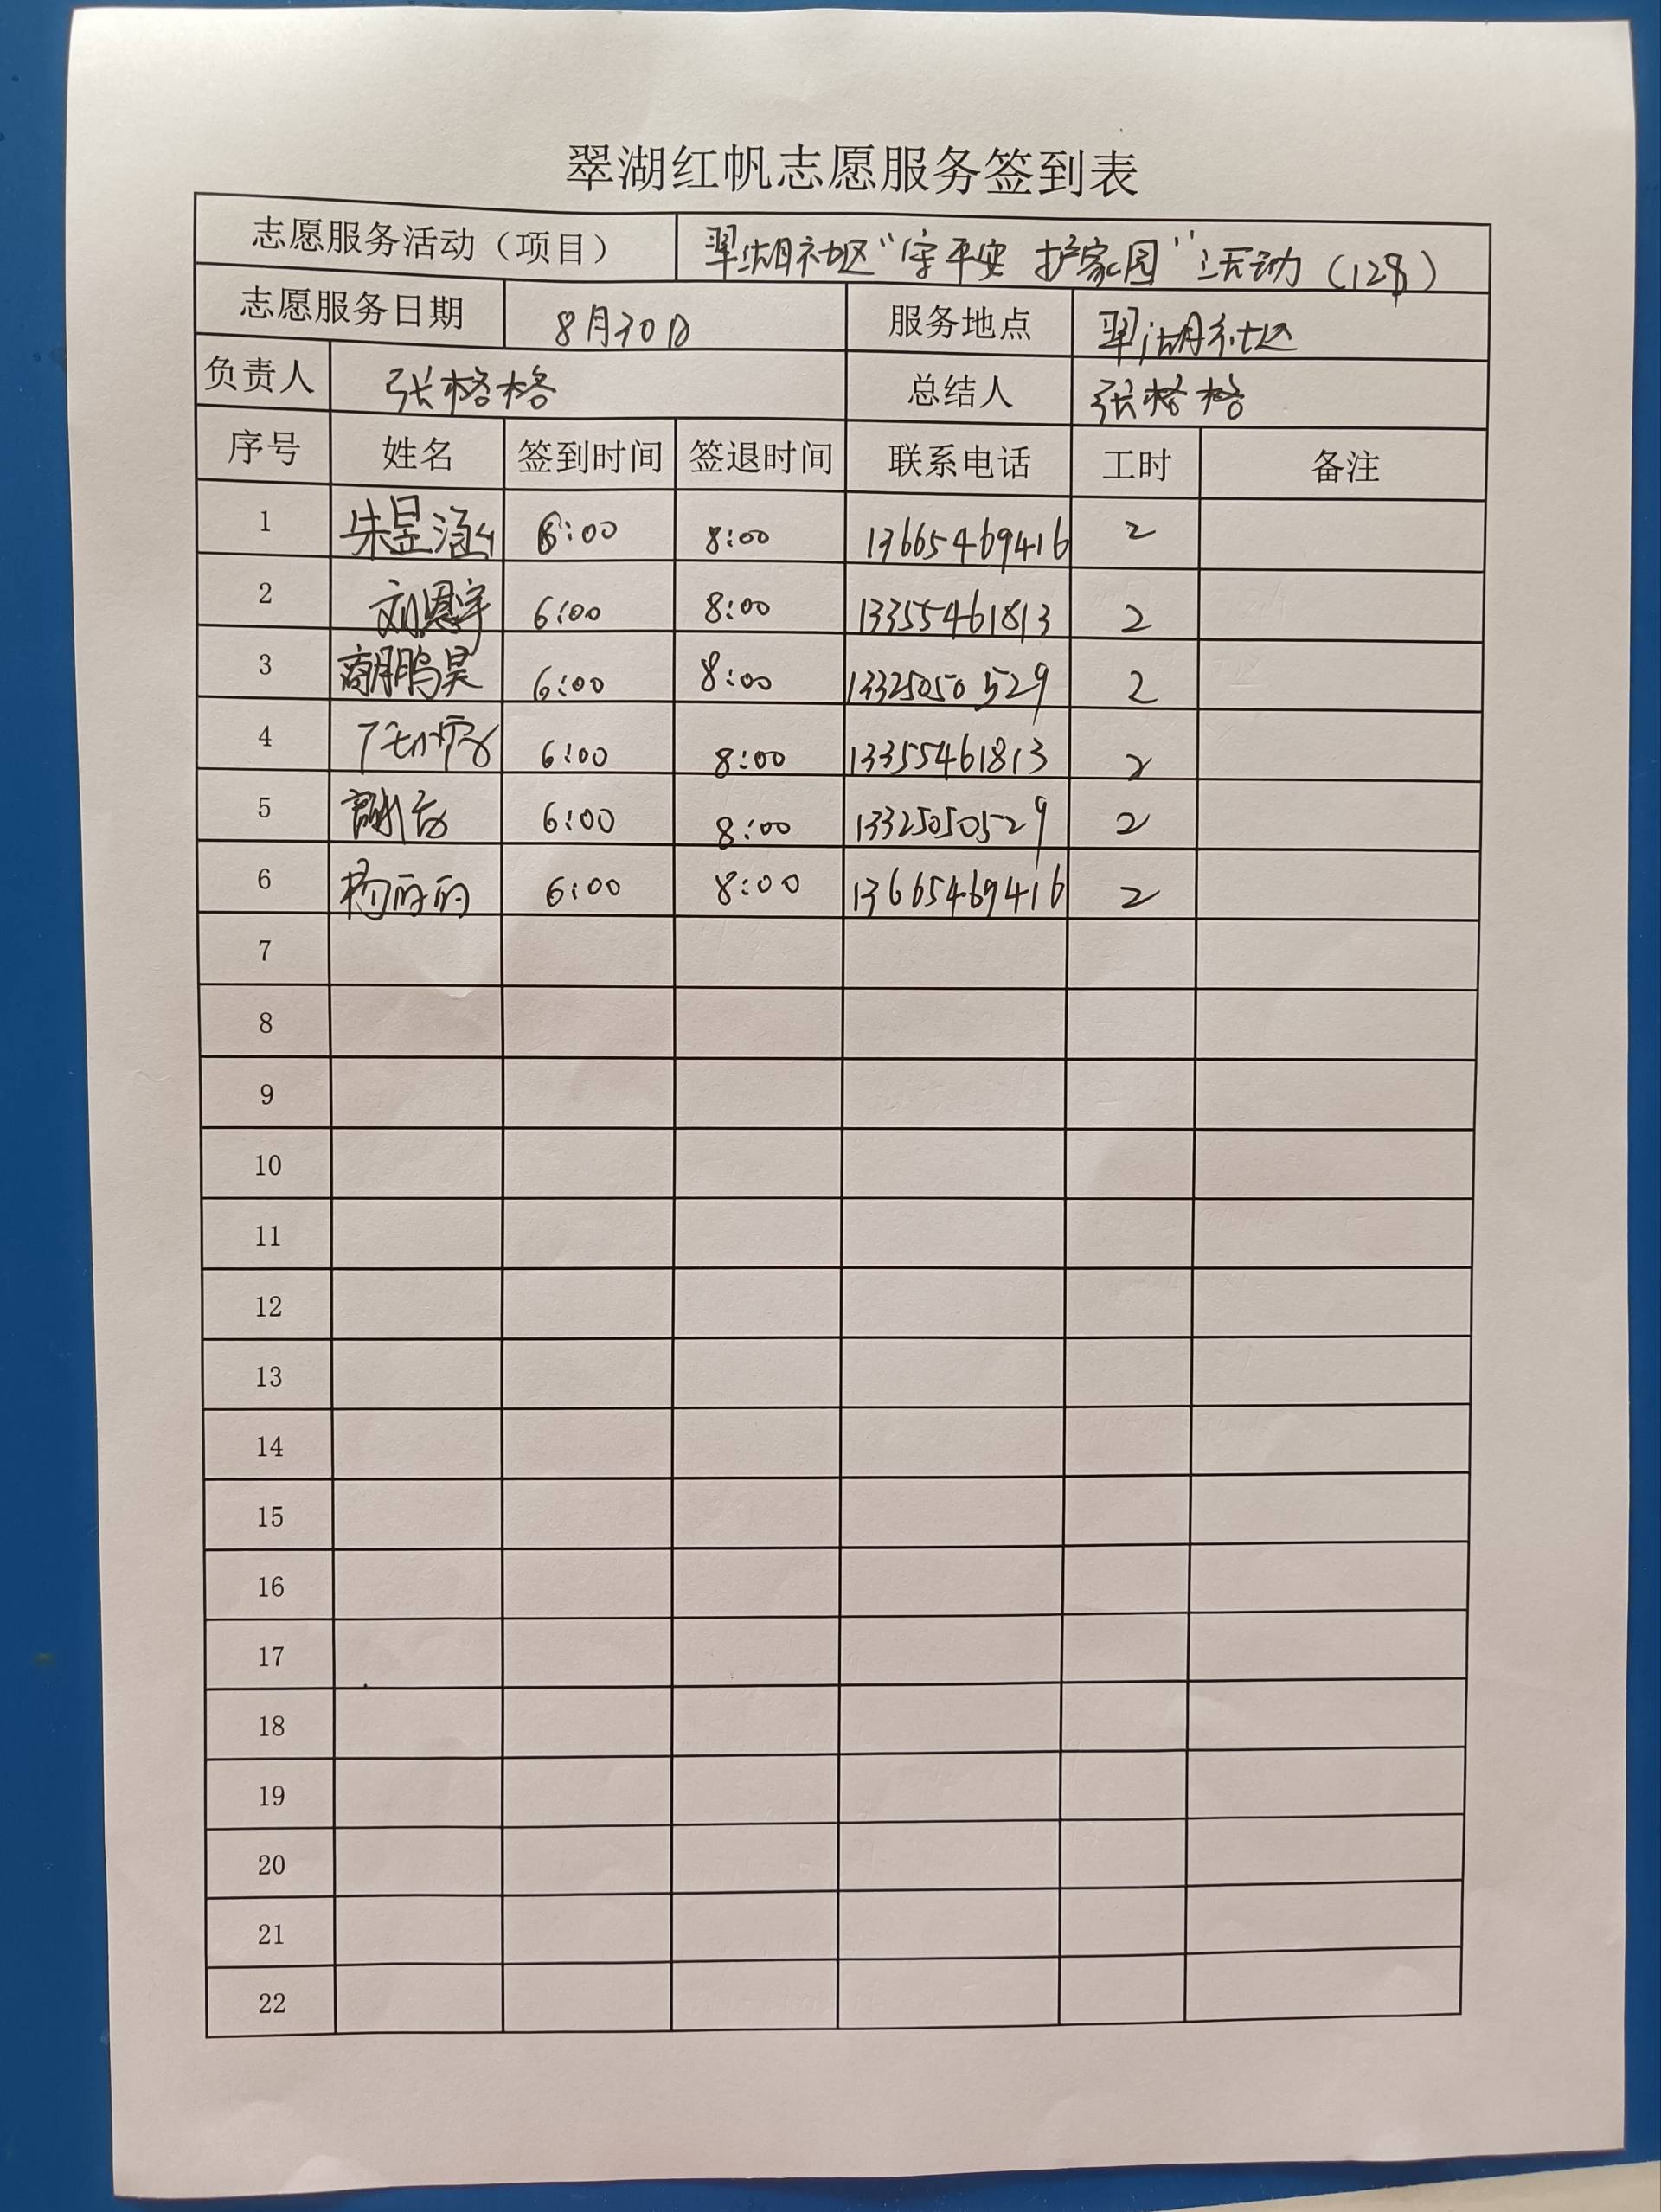 翠湖红帆志愿服务签到表
志愿服务活动（项目） 翠湖社区“守平安 护家园”活动（128）
志愿服务日期 8月30日 服务地点 翠湖社区
负责人 张格格 总结人 张格格
序号 姓名 签到时间 签退时间 联系电话 工时 备注
1 朱昱涵 6:00 8:00 13665469416 2
2 刘恩宇 6:00 8:00 13355461813 2
3 鹏昊 6:00 8:00 13325050529 2
4 6:00 8:00 13355461813 2
5 6:00 8:00 13325050529 2
6 杨丽丽 6:00 8:00 13665469416 2
7
8
9
10
11
12
13
14
15
16
17
18
19
20
21
22